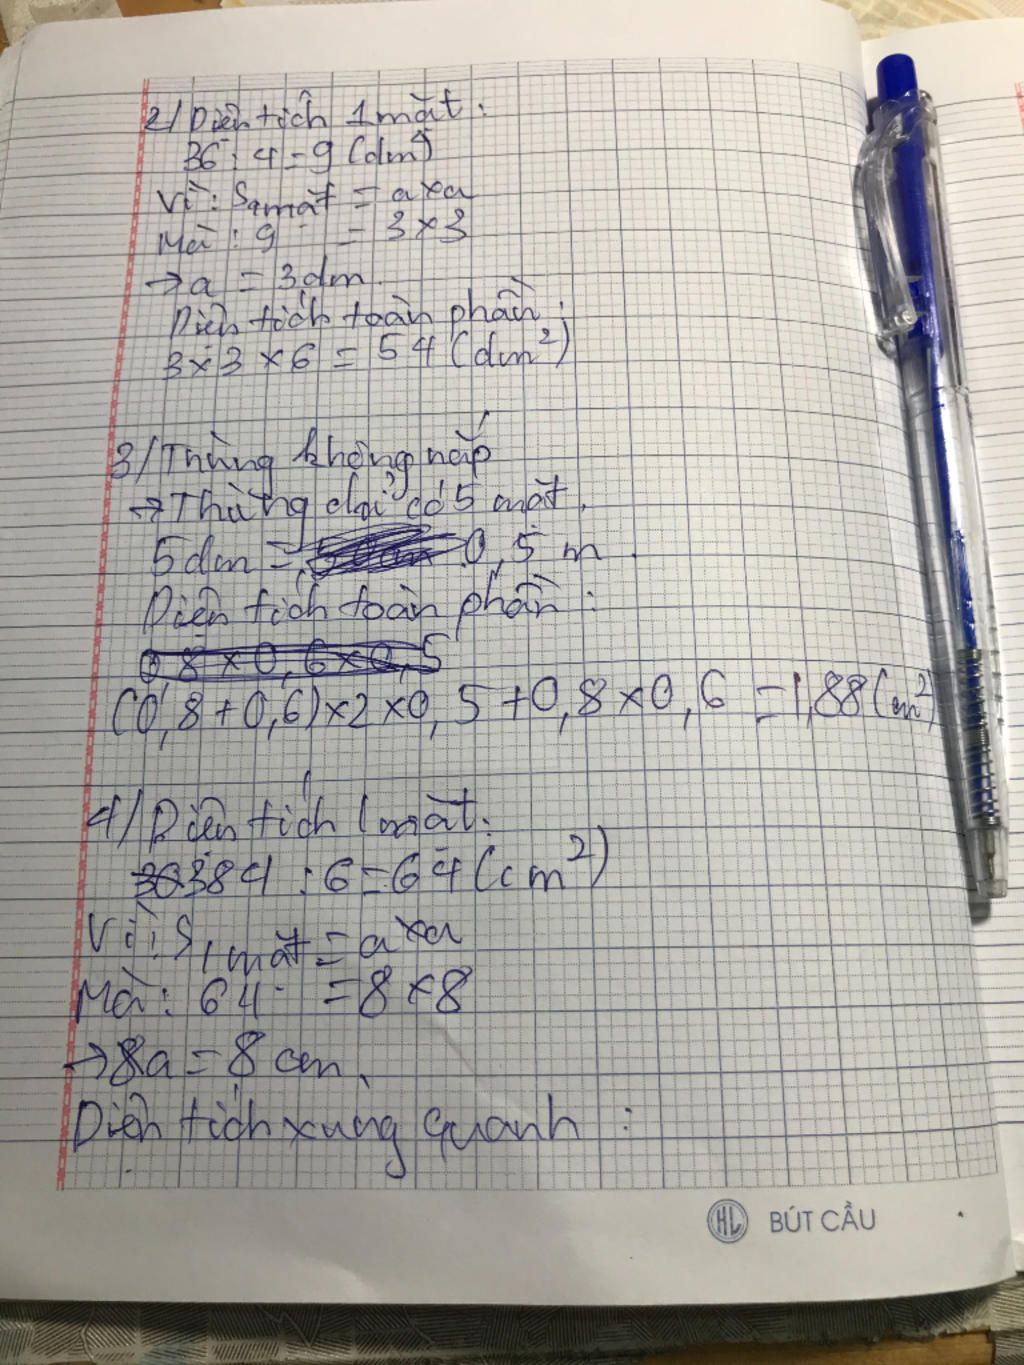 2/ Diện tích 1 mặt:
36 : 4 = 9 (dm²)
Vì: S1mặt = a×a
Mà: 9 = 3×3
→ a = 3dm.
Diện tích toàn phần:
3×3×6 = 54 (dm²)
3/ Thùng không nắp
→ Thùng chỉ có 5 mặt.
5dm = 0,5 m.
Diện tích toàn phần:
0,8×0,6×0,5
(0,8+0,6)×2×0,5+0,8×0,6 = 1,88 (m²)
4/ Diện tích 1 mặt:
384 : 6 = 64 (cm²)
Vì: S1mặt = a×a
Mà: 64 = 8×8
→ a = 8 cm.
Diện tích xung quanh:
HL BÚT CẦU